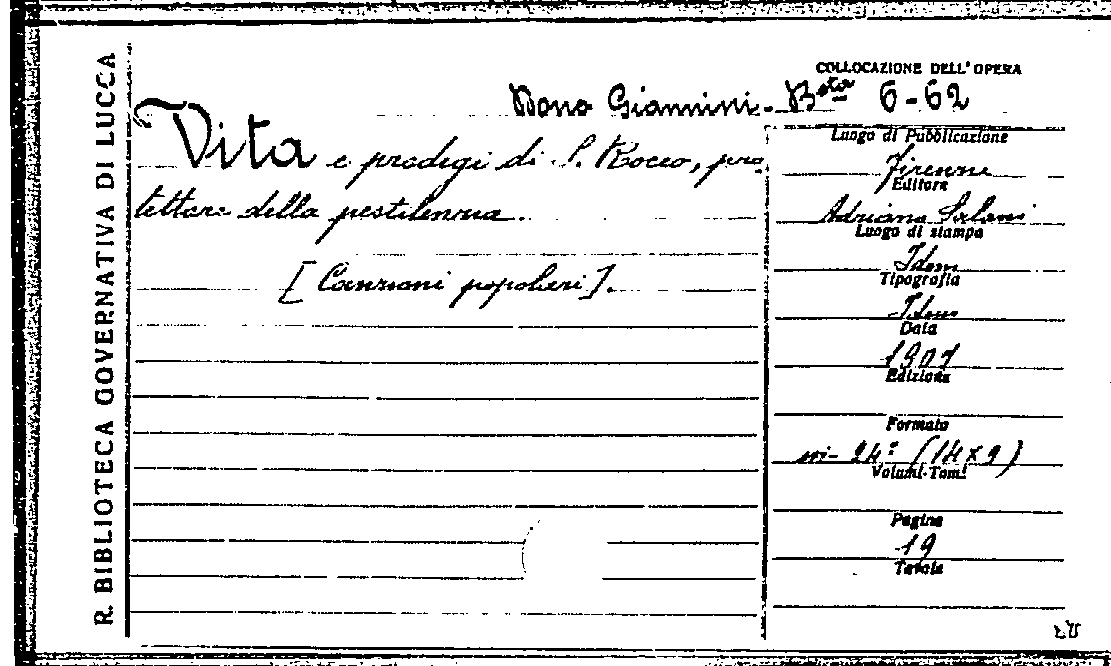 R. BIBLIOTECA GOVERNATIVA DI LUCCA
COLLOCAZIONE DELL'OPERA
Dono Giannini - Bsta 6-62
Vita e prodigi di S. Rocco, pro
tettore della pestilenza.
[Canzoni popolari].
Luogo di Pubblicazione
Firenze
Editore
Adriano Salani
Luogo di stampa
Idem
Tipografia
Idem
Data
1901
Edizione
Formato
in-24º (14x9)
Volumi-Tomi
Pagine
19
Tavole